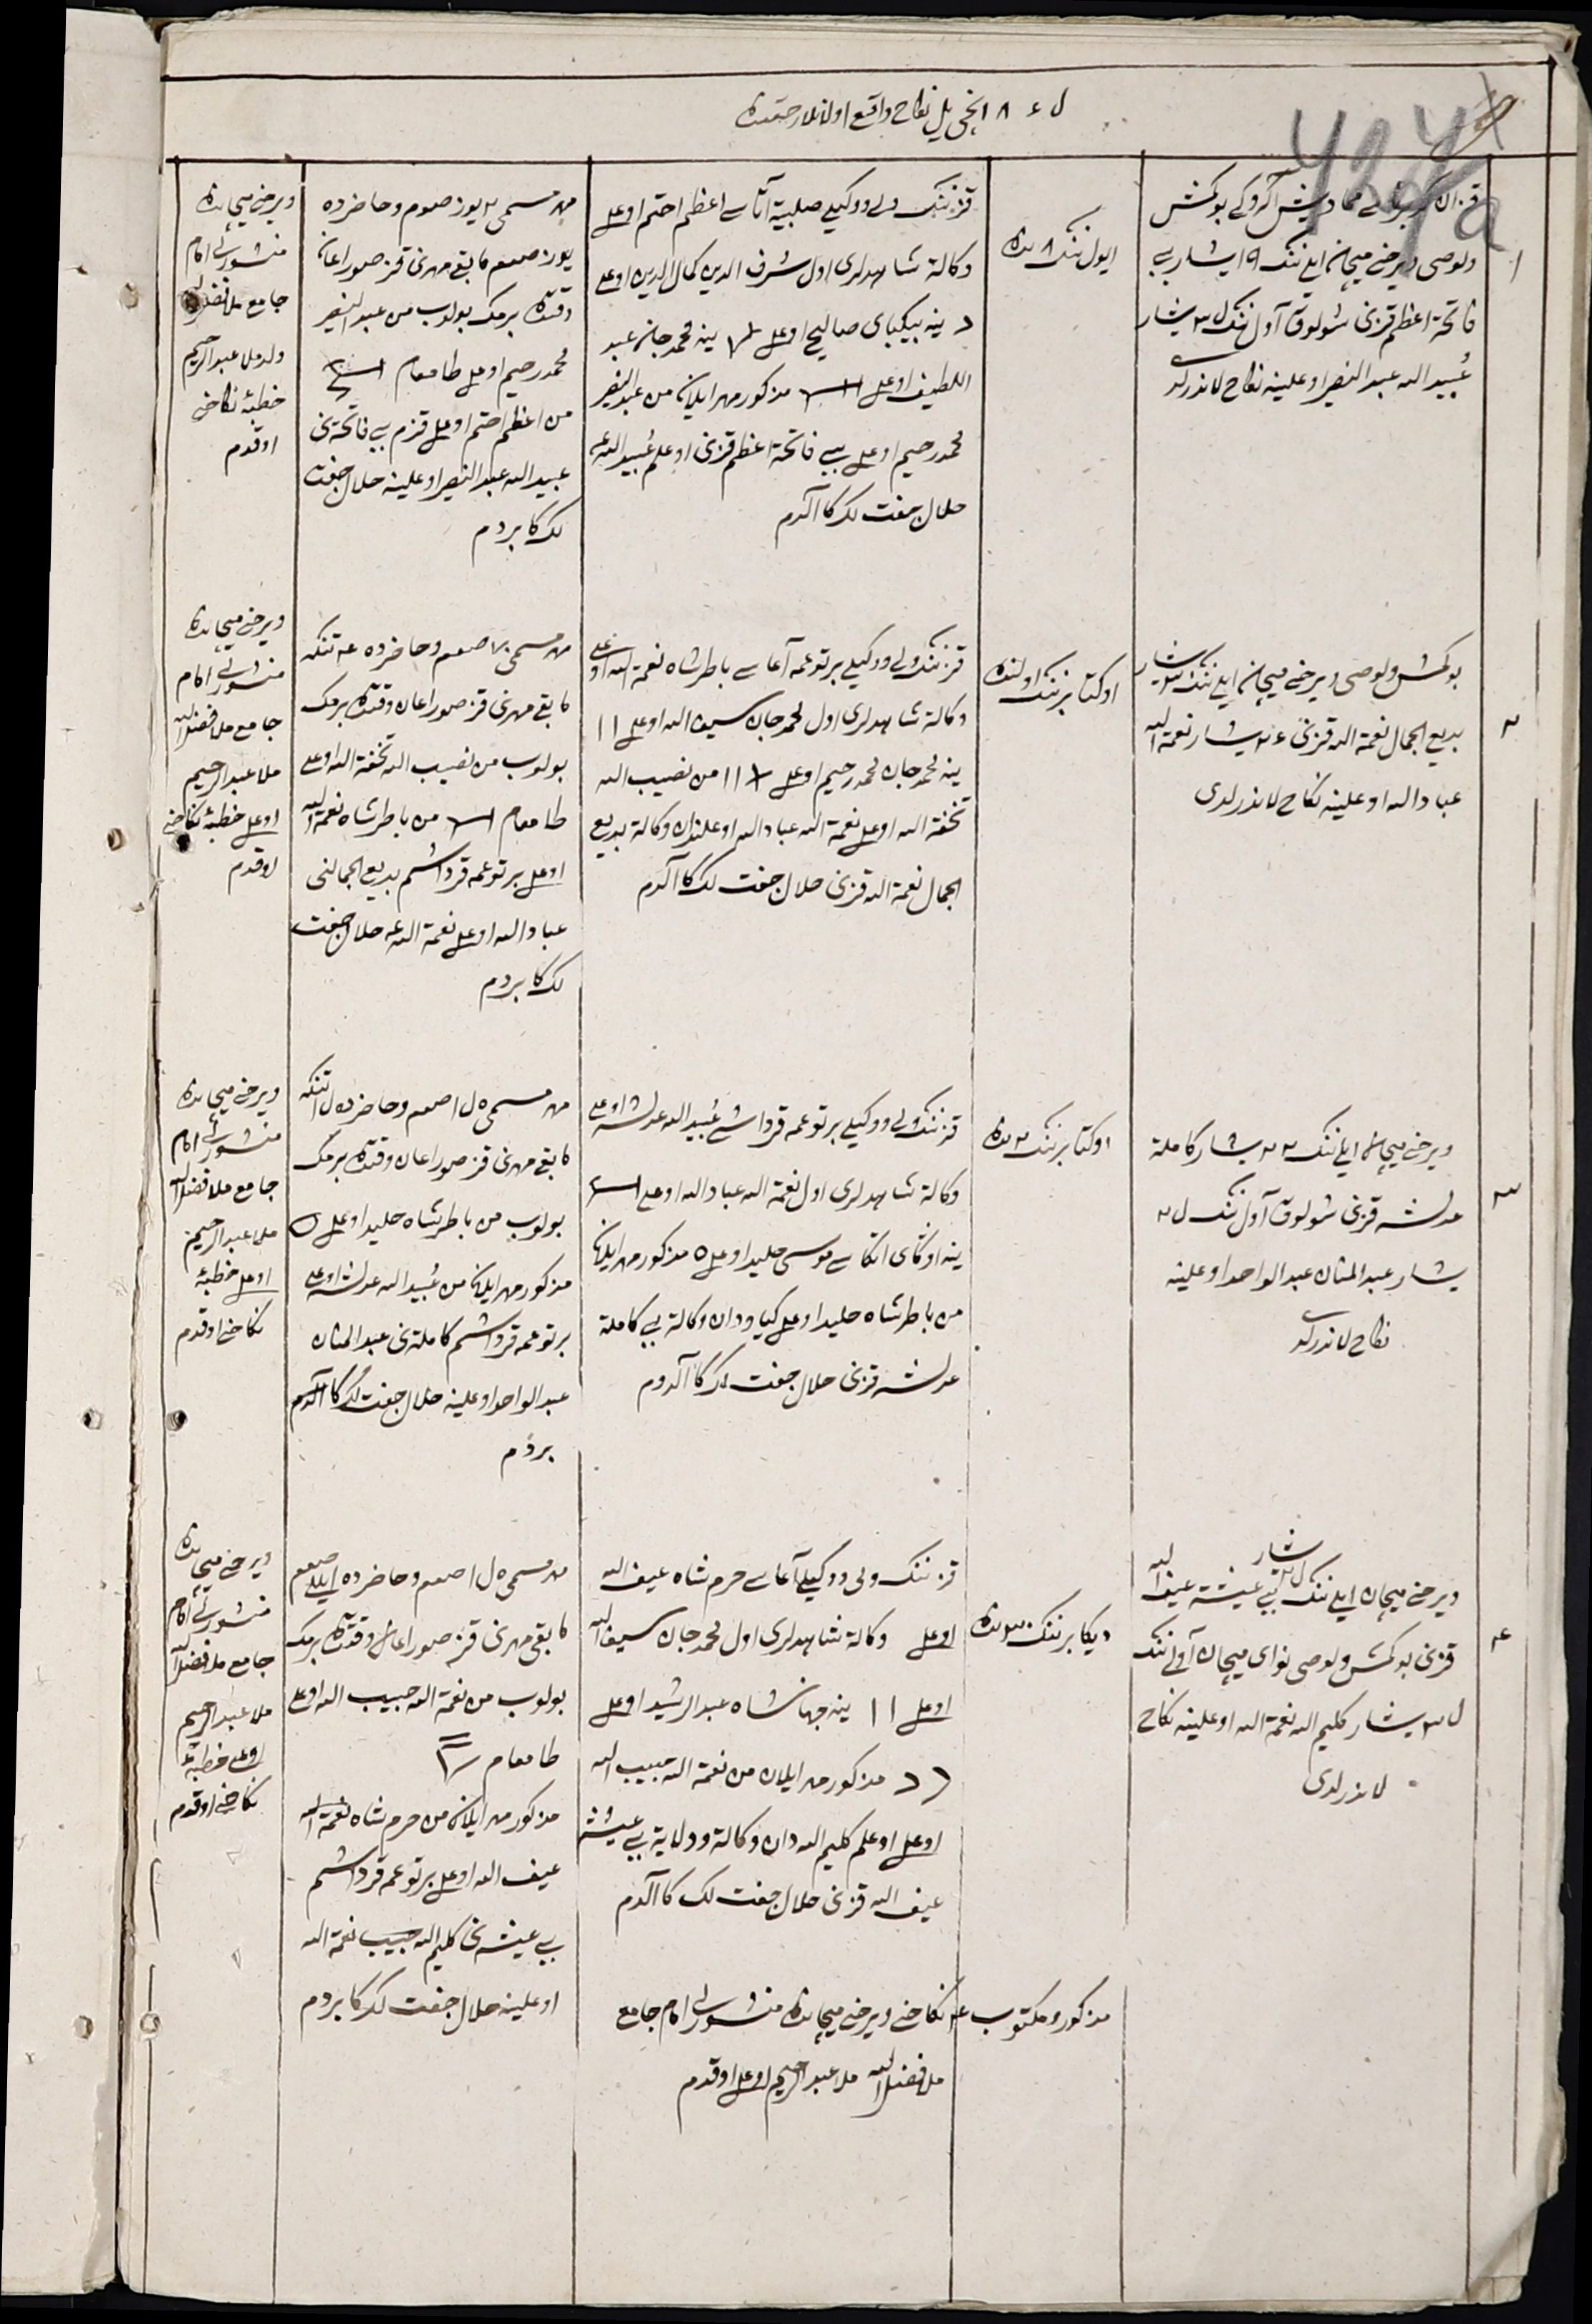 نچی یل نکاح واقع اولانلار حقنده
۱
ولوصی ویرخنی میچان ایلی ننک ۱۹ یشار بی
فاتحة اعظم قزنی شولوق آول ننک یشار
عُبید الله عبد النصیر اوغلینه نکاح لاندرلدی
ایول ننک ۸ نده
قزننک ولی و وکیلی صلبیة آتاسی اعظم احتم اوغلی
وکالة شاهدلری اول شرف الدین کمال الدین اوغلی
ینه بیکبای صالیح اوغلی ینه محمد جان عبد
اللطیف اوغلی مذکور مهر ایلان من عبد النصیر
محمد رحیم اوغلی بی فاتحة اعظم قزنی اوغلم عُبید الله غه
حلال جفت لککا آلدم
مهر مسمی یوز صوم و حاضرده
یوز صوم مابقی مهرنی قز صوراغان
وقتنده برمک بولوب من عبد النصیر
محمد رحیم اوغلی طامغام
من اعظم احتم اوغلی قزم بی فاتحة نی
عبید الله عبد النصیر اوغلینه حلال جفت
لککا بردم
ویرخنی میچانده
منشورلی امام
جامع ملا فضل الله
ولد ملا عبد الرحیم
خطبهٔ نکاحنی
اوقدم
۲
بوکش ولوصی ویرخنی میچان ایلی ننک یشار
بدیع الجمال نعمة الله قزنی یشار نعمة الله
عباد الله اوغلینه نکاح لاندرلدی
اوکتابرننک اولنده
قزننک ولی و وکیلی برتوغمه آغاسی باطرشاه نعمة الله اوغلی
وکالة شاهدلری اول محمد جان سیف الله اوغلی
ینه محمد جان محمد رحیم اوغلی من نصیب الله
تحفة الله اوغلی نعمة الله عباد الله اوغلندن وکالة بدیع
الجمال نعمة الله قزنی حلال جفت لککا آلدم
مهر مسمی صوم و حاضرده تنکه
مابقی مهرنی قز صوراغان وقتنده برمک
بولوب من نصیب الله تحفة الله اوغلی
طامغام من باطرشاه نعمة الله
اوغلی برتوغمه قرداشم بدیع الجمالنی
عباد الله اوغلی نعمة الله غه حلال جفت
لککا بردم
ویرخنی میچانده
منشورلی امام
جامع ملا فضل الله
ملا عبد الرحیم
اوغلی خطبهٔ نکاحنی
اوقدم
۳
ویرخنی میچان ایلی ننک ۲۲ یشار کاملة
عدلشه قزنی شولوق آول ننک
یشار عبد المنان عبد الواحد اوغلینه
نکاح لاندرلدی
اوکتابرننک نده
قزننک ولی و وکیلی برتوغمه قرداشی عُبید الله عدلشه اوغلی
وکالة شاهدلری اول نعمة الله عباد الله اوغلی
ینه اوکای اتکاسی موسی حلید اوغلی مذکور مهر ایلان
من باطرشاه حلید اوغلی کیاودان وکالة بی کاملة
عدلشه قزنی حلال جفت لککا آلدوم
مهر مسمی صوم و حاضرده تنکه
مابقی مهرنی قز صوراغان وقتنده برمک
بولوب من باطرشاه حلید اوغلی
مذکور مهر ایلان من عُبید الله عدلشه اوغلی
برتوغمه قرداشم کاملةنی عبد المنان
عبد الواحد اوغلینه حلال جفت لککا آلدم
بردم
ویرخنی میچانده
منشورلی امام
جامع ملا فضل الله
ملا عبد الرحیم
اوغلی خطبهٔ
نکاحنی اوقدم
۴
یشار
ویرخنی میچان ایلی ننک بی عیشة عیف الله
قزنی بوکش ولوصی نوای میچان آولی ننک
یشار کلیم الله نعمة الله اوغلینه نکاح
لاندرلدی
دیکابرننک نده
قزننک ولی و وکیلی آغاسی حرم شاه عیف الله
اوغلی وکالة شاهدلری اول محمد جان سیف الله
اوغلی ینه جهانشاه عبد الرشید اوغلی
مذکور مهر ایلان من نعمة الله حبیب الله
اوغلی اوغلم کلیم الله دان وکالة و ولایة بی عیشة
عیف الله قزنی حلال جفت لککا آلدم
مهر مسمی صوم و حاضرده صوم
مابقی مهرنی قز صوراغان وقتنده برمک
بولوب من نعمة الله حبیب الله اوغلی
طامغام
مذکور مهر ایلان من حرم شاه نعمة الله
عیف الله اوغلی برتوغمه قرداشم
بی عیشه نی کلیم الله حبیب نعمة الله
اوغلینه حلال جفت لککا بردم
ویرخنی میچانده
منشورلی امام
جامع ملا فضل الله
ملا عبد الرحیم
اوغلی خطبهٔ
نکاحنی اوقدم
مذکور و مکتوب ۴ نکاحنی ویرخنی میچانده منشورلی امام جامع
ملا فضل الله ملا عبد الرحیم اوغلی اوقدم